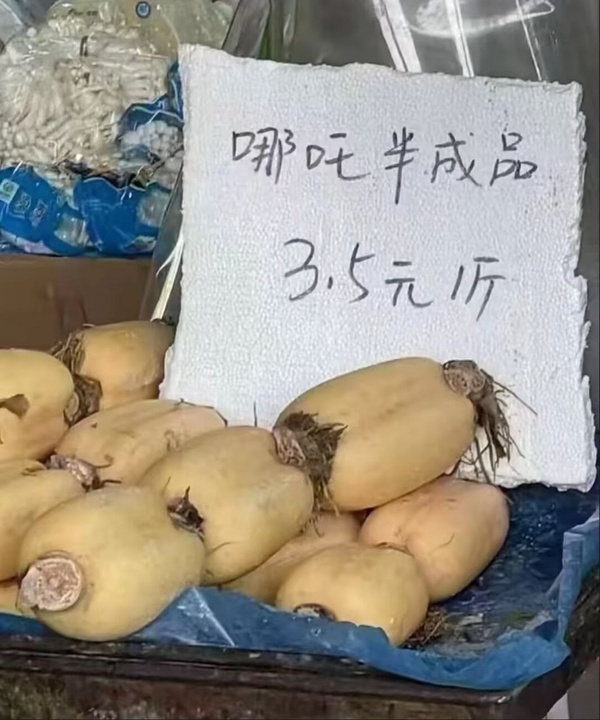 哪吒半成品
3.5元/斤